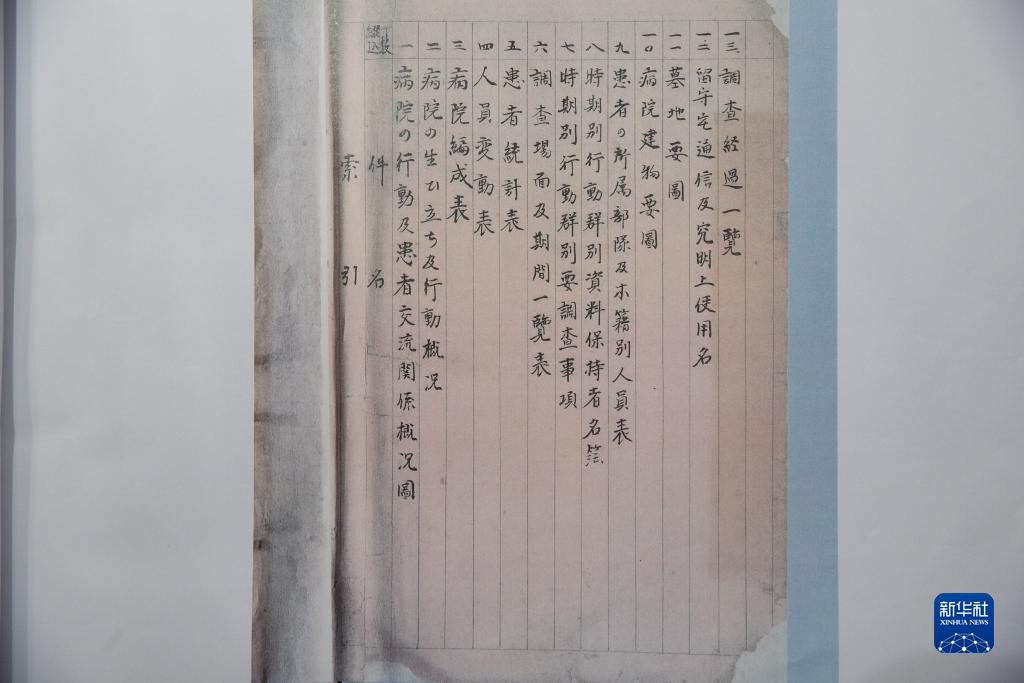 索引
件名
一 病院の行動及患者交流関係概況圖
二 病院の生ひ立ち及行動概況
三 病院編成表
四 人員変動表
五 患者統計表
六 調査場面及期間一覽表
七 時期別行動群別要調査事項
八 時期別行動群別資料保持者名
九 患者の所属部隊及本籍別人員表
一〇 病院建物要圖
一一 墓地要圖
一二 留守宅通信及究明上使用名
一三 調査経過一覽
新华社
XINHUA NEWS